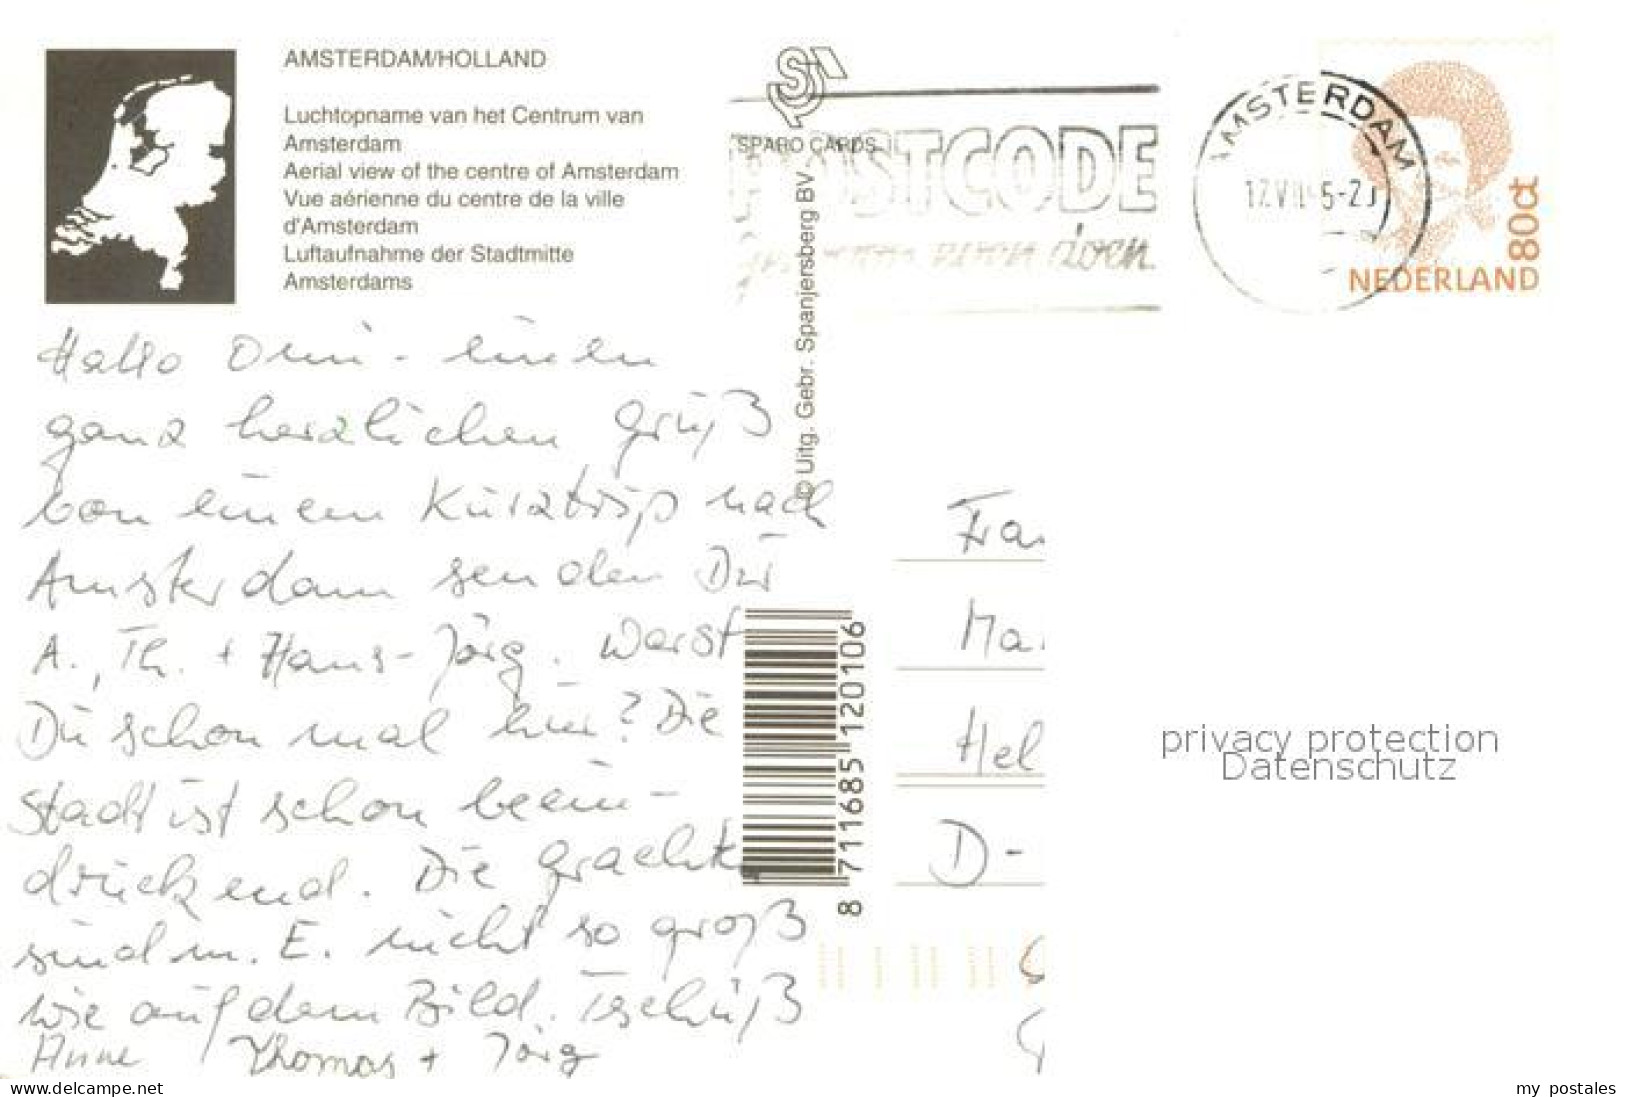 AMSTERDAM/HOLLAND
Luchtopname van het Centrum van
Amsterdam
Aerial view of the centre of Amsterdam
Vue aérienne du centre de la ville
d'Amsterdam
Luftaufnahme der Stadtmitte
Amsterdams
SPARO CARDS
© Uitg. Gebr. Spanjersberg BV
POSTCODE
doen
AMSTERDAM
NEDERLAND
80ct
Hallo Omi - einen
ganz herzlichen Gruß
von einem Kurztrip nach
Amsterdam senden Dir
A., Th. + Hans-Jörg. Warst
Du schon mal hier? Die
Stadt ist schon beein-
druckend. Die Grachten
sind m. E. nicht so groß
wie auf dem Bild. Tschüß
Anne Thomas + Jörg
8 711685 120106
Fra
Ma
Hel
D-
privacy protection
Datenschutz
www.delcampe.net
my_postales